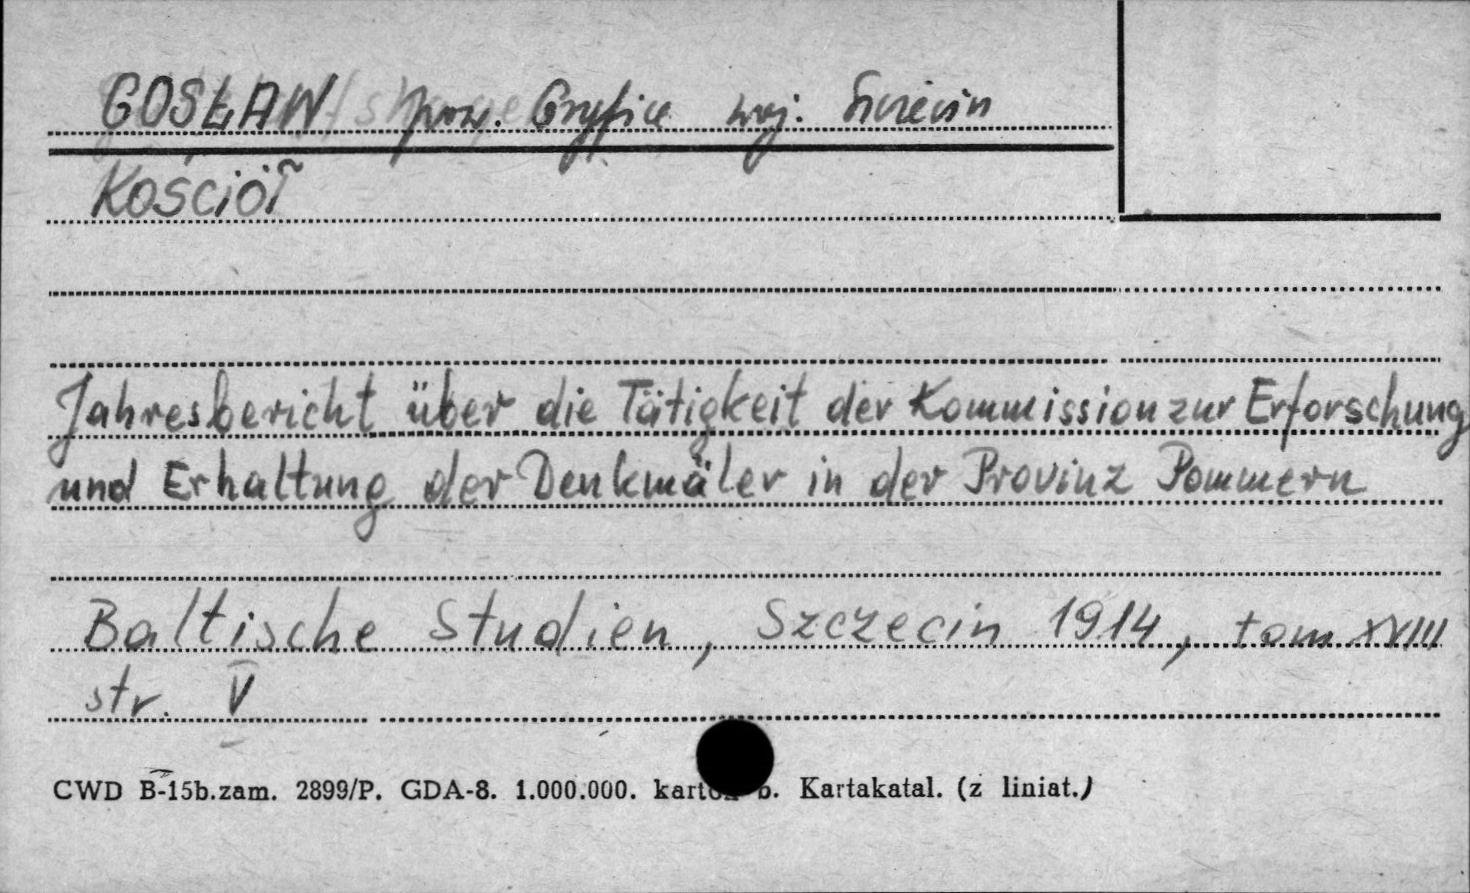 GOSŁAW pow. Gryfice woj. Szczecin
KOŚCIÓŁ
Jahresbericht über die Tätigkeit der Kommission zur Erforschung
und Erhaltung der Denkmäler in der Provinz Pommern
Baltische Studien, Szczecin 1914, tom XVIII
str. V
CWD B-15b.zam. 2899/P. GDA-8. 1.000.000. b. Kartakatal. (z liniat.)